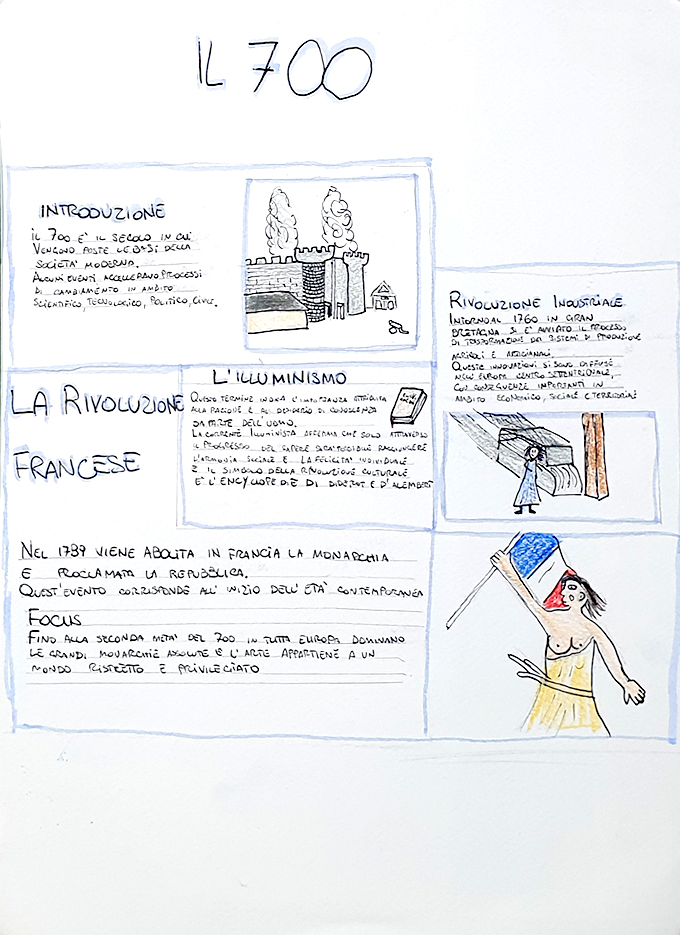 IL 700
INTRODUZIONE
IL 700 E' IL SECOLO IN CUI
VENGONO POSTE LE BASI DELLA
SOCIETA' MODERNA.
ALCUNI EVENTI ACCELLERANO PROCESSI
DI CAMBIAMENTO IN AMBITO
SCIENTIFICO, TECNOLOGICO, POLITICO, CIVILE.
RIVOLUZIONE INDUSTRIALE
INTORNO AL 1760 IN GRAN
BRETAGNA SI E' AVVIATO IL PROCESSO
DI TRASFORMAZIONI DEI SISTEMI DI PRODUZIONE
AGRICOLI E ARTIGIANALI.
QUESTE INNOVAZIONI SI SONO DIFFUSE
NELL'EUROPA CENTRO SETTENTRIONALE,
CON CONSEGUENZE IMPORTANTI IN
AMBITO ECONOMICO, SOCIALE E TERRITORIALE
L'ILLUMINISMO
QUESTO TERMINE INDICA L'IMPORTANZA ATTRIBUITA
ALLA RAGIONE E AL DESIDERIO DI CONOSCENZA
DA PARTE DELL'UOMO.
LA CORRENTE ILLUMINISTA AFFERMA CHE SOLO ATTRAVERSO
IL PROGRESSO DEL SAPERE SARÀ POSSIBILE RAGGIUNGERE
L'ARMONIA SOCIALE E LA FELICITÀ INDIVIDUALE
E IL SIMBOLO DELLA RIVOLUZIONE CULTURALE
E' L'ENCYCLOPEDIE DI DIDEROT E D'ALEMBERT
LA RIVOLUZIONE
FRANCESE
NEL 1789 VIENE ABOLITA IN FRANCIA LA MONARCHIA
E PROCLAMATA LA REPUBBLICA.
QUEST'EVENTO CORRISPONDE ALL'INIZIO DELL'ETÀ CONTEMPORANEA
FOCUS
FINO ALLA SECONDA METÀ DEL 700 IN TUTTA EUROPA DOMINANO
LE GRANDI MONARCHIE ASSOLUTE E L'ARTE APPARTIENE A UN
MONDO RISTRETTO E PRIVILEGIATO